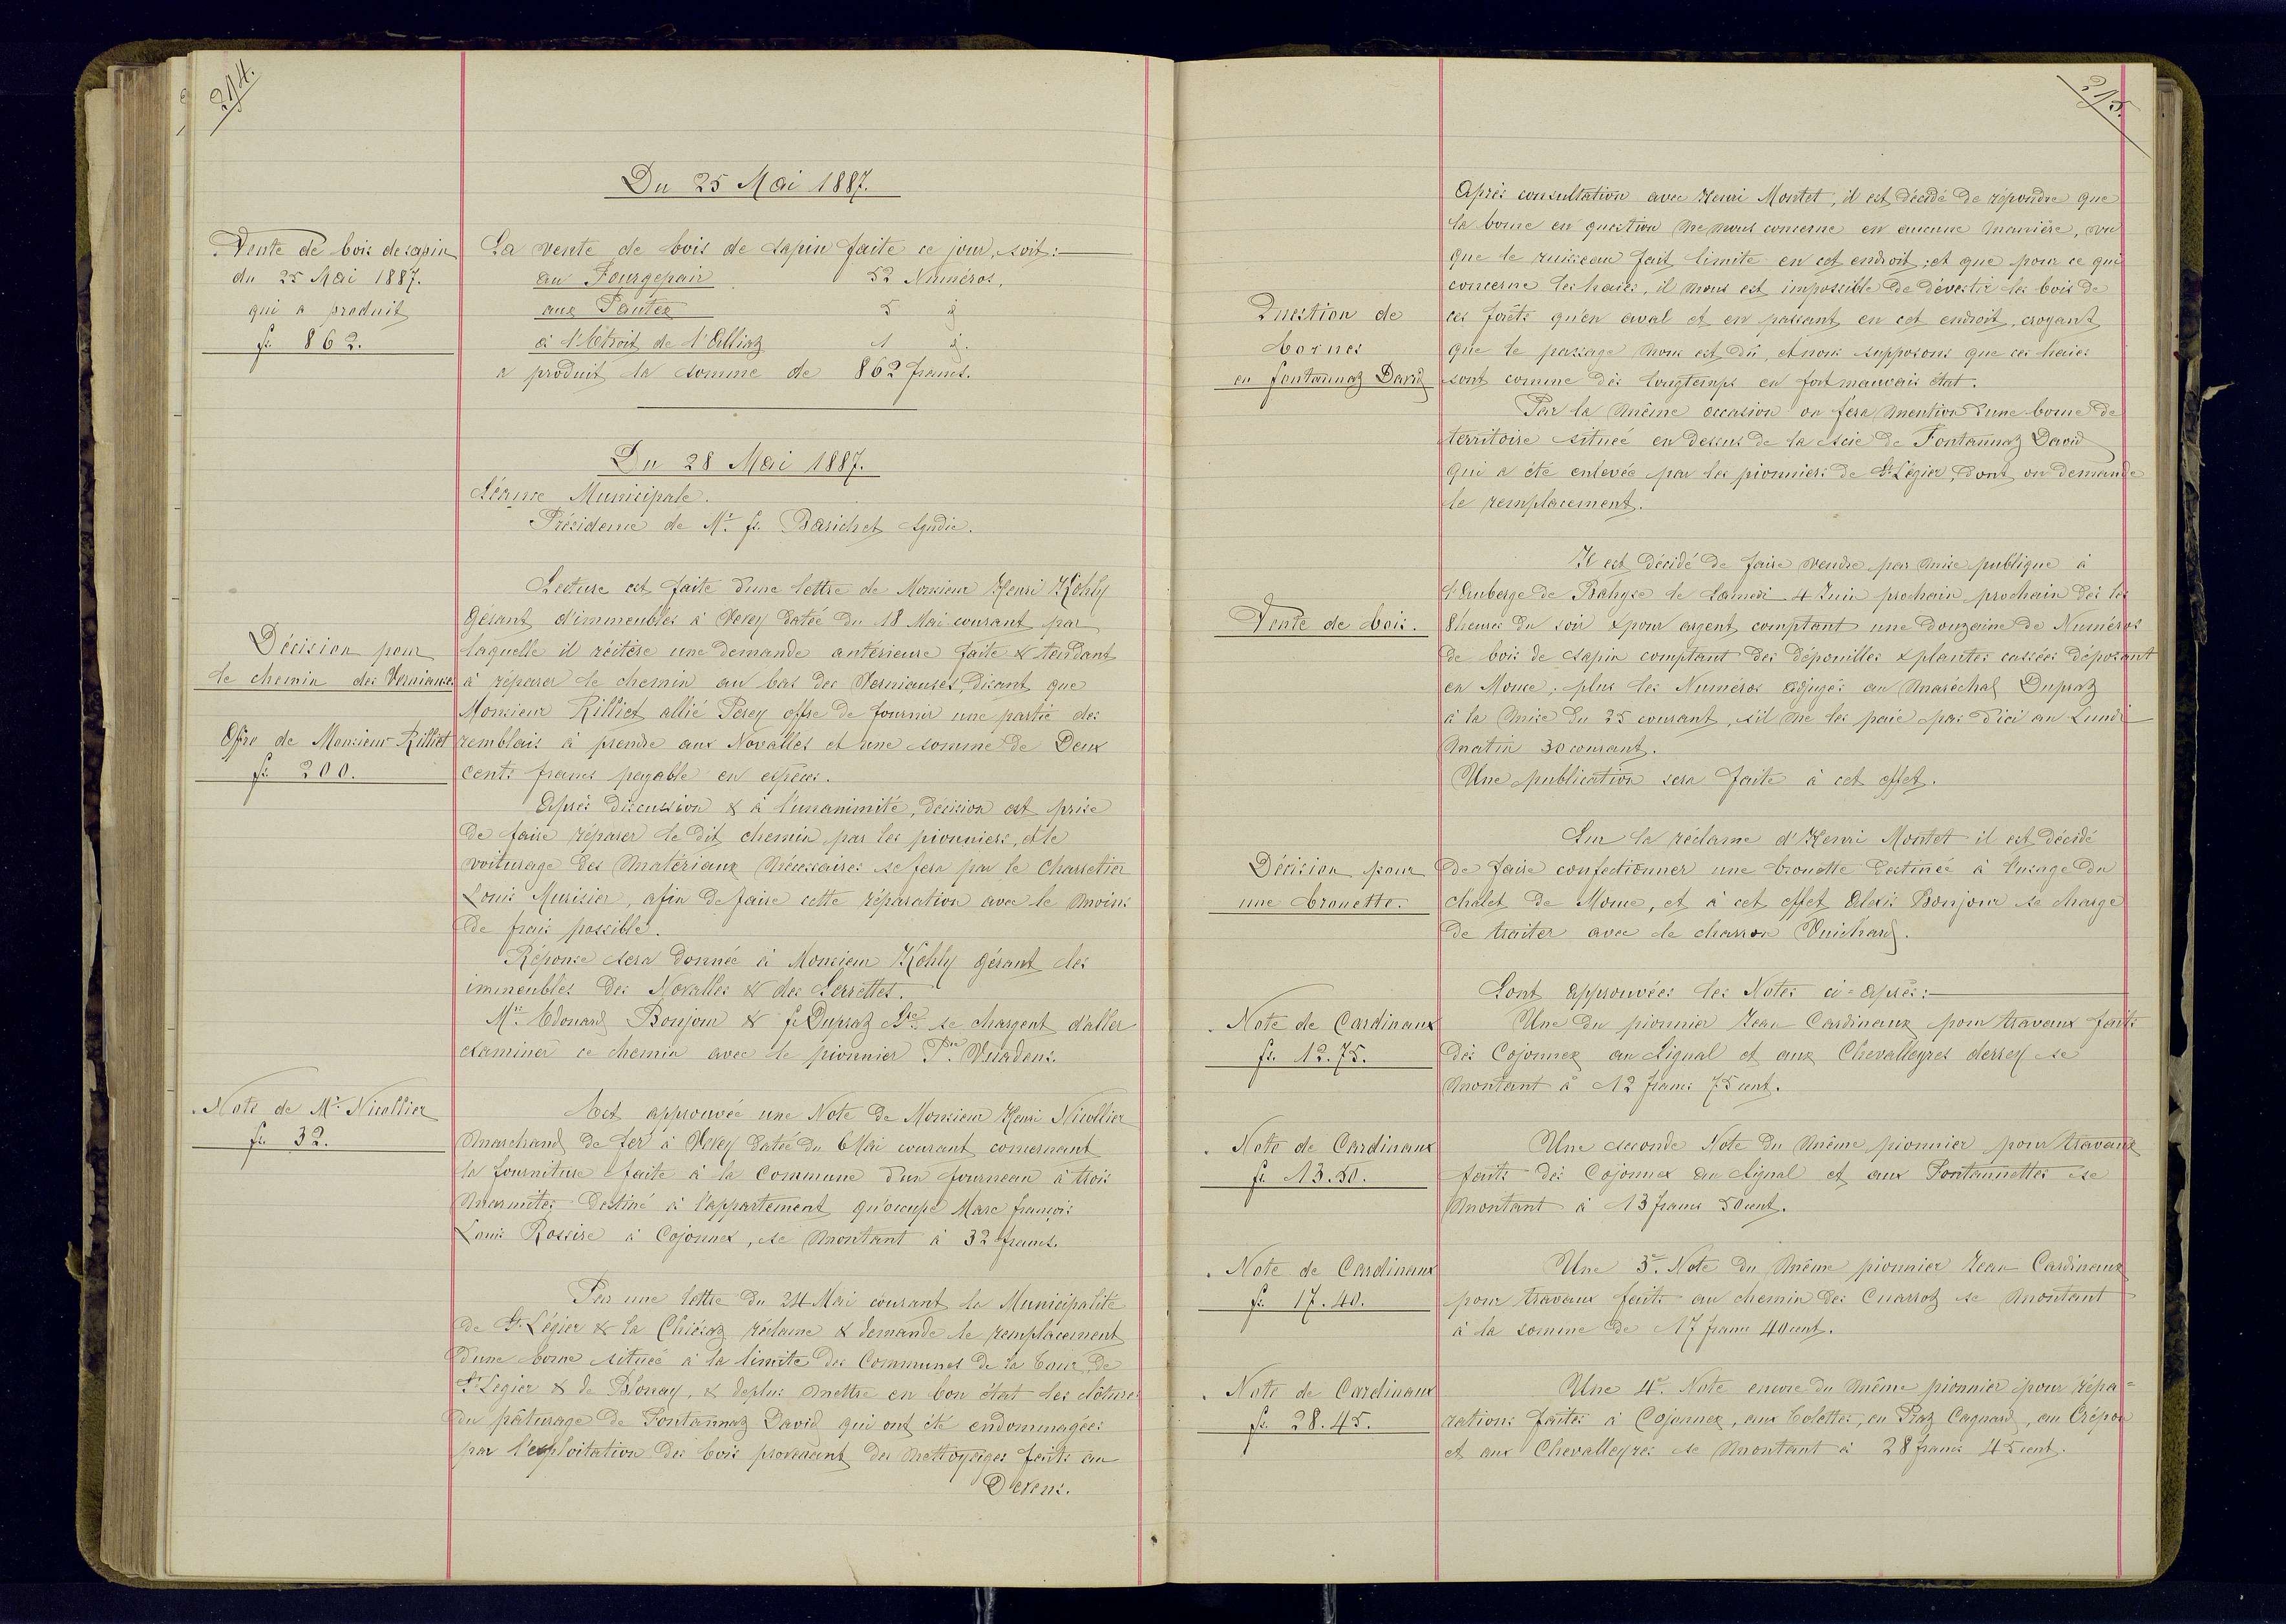 214.
Du 25 Mai 1887.
Vente de bois de sapin
du 25 Mai 1887.
qui a produit
fr. 862.
La vente de bois de sapin faite ce jour, soit:
au Fourgepair 52 Numéros.
aux Pautex 5 d
à l'Etroit de l'Alliaz 1 d.
a produit la somme de 862 francs.
Du 28 Mai 1887.
Séance Municipale.
Présidence de Mr. fs. Barichet Syndic.
Décision pour
le chemin des Verniauses
Offre de Monsieur Rilliet
fr. 200.
Lecture est faite d'une lettre de Monsieur Henri Köhly
gérant d'immeubles à Vevey datée du 18 Mai courant par
laquelle il réitère une demande antérieure faite & tendant
à réparer le chemin au bas des Verniauses, disant que
Monsieur Rilliet allié Perey offre de fournir une partie des
remblais à prendre aux Novalles et une somme de Deux
cents francs payable en espèces.
Après discussion & à l'unanimité, décision est prise
de faire réparer le dit chemin par les pionniers, et le
voiturage des matériaux nécessaires se fera par le charretier
Louis Murisier, afin de faire cette réparation avec le moins
de frais possible.
Réponse sera donnée à Monsieur Köhly gérant des
immeubles des Novalles & des Serrettes.
Mrs. Edouard Bonjour & fs Dupraz Sre. se chargent d'aller
examiner ce chemin avec le pionnier Vuadens.
Note de Mr. Nicollier
fr. 32.
Est approuvée une Note de Monsieur Henri Nicollier
marchand de fer à Vevey datée du 6 Mai courant concernant
la fourniture faite à la Commune d'un fourneau à trois
marmites destiné à l'appartement qu'occupe Marc françois
Louis Rossire à Cojonnex, se montant à 32 francs.
Par une lettre du 24 Mai courant la Municipalité
de St. Légier & la Chiésaz réclame & demande le remplacement
d'une borne située à la limite des Communes de la Tour, de
St. Légier & de Blonay, & deplus mettre en bon état les clôtures
du pâturage de Fontannaz David qui ont été endommagées
par l'exploitation des bois provenant des nettoyages faits au
Devens.
215.
Question de
bornes
en fontannaz David
Après consultation avec Henri Montet, il est décidé de répondre que
la borne en question ne nous concerne en aucune manière, vu
que le ruisseau fait limite en cet endroit; et que pour ce qui
concerne les haies, il nous est impossible de dévestir les bois de
ces forêts qu'en aval et en passant en cet endroit, croyant
que le passage nous est dû, et nous supposons que ces haies
sont comme dès longtemps en fort mauvais état.
Par la même occasion on fera mention d'une borne de
territoire située en dessus de la scie de Fontannaz David
qui a été enlevée par les pionniers de St. Légier, dont on demande
le remplacement.
Vente de bois.
Il est décidé de faire vendre par mise publique à
l'Auberge de Bahyse le Samedi 4 Juin prochain prochain dès les
8 heures du soir & pour argent comptant une douzaine de Numéros
de bois de sapin comptant des dépouilles & plantes cassées déposant
en Mouse, plus les Numéros adjugés au maréchal Dupraz
à la mise du 25 courant, s'il ne les paie pas d'ici au Lundi
matin 30 courant.
Une publication sera faite à cet effet.
Décision pour
une brouette.
Sur la réclame d'Henri Montet il est décidé
de faire confectionner une brouette destinée à l'usage du
chalet de Mouse, et à cet effet Alexis Bonjour se charge
de traiter avec le charron Vuichard.
Sont approuvées les Notes ci-après:
Note de Cardinaux
fr. 12.75.
Une du pionnier Jean Cardinaux pour travaux faits
dès Cojonnex au Signal et aux Chevalleyres dessey se
montant à 12 francs 75 cent.
Note de Cardinaux
fr. 13.50.
Une seconde Note du même pionnier pour travaux
faits dès Cojonnex au Signal et aux Fontannettes se
montant à 13 francs 50 cent.
Note de Cardinaux
fr. 17.40.
Une 3e. Note du même pionnier Jean Cardinaux
pour travaux faits au chemin des Cuarroz se montant
à la somme de 17 francs 40 cent.
Note de Cardinaux
fr. 28.45.
Une 4e. Note encore du même pionnier pour répa=
rations faites à Cojonnex, aux Colettes, en Praz Cagnard, au Crépon
et aux Chevalleyres se montant à 28 francs 45 cent.